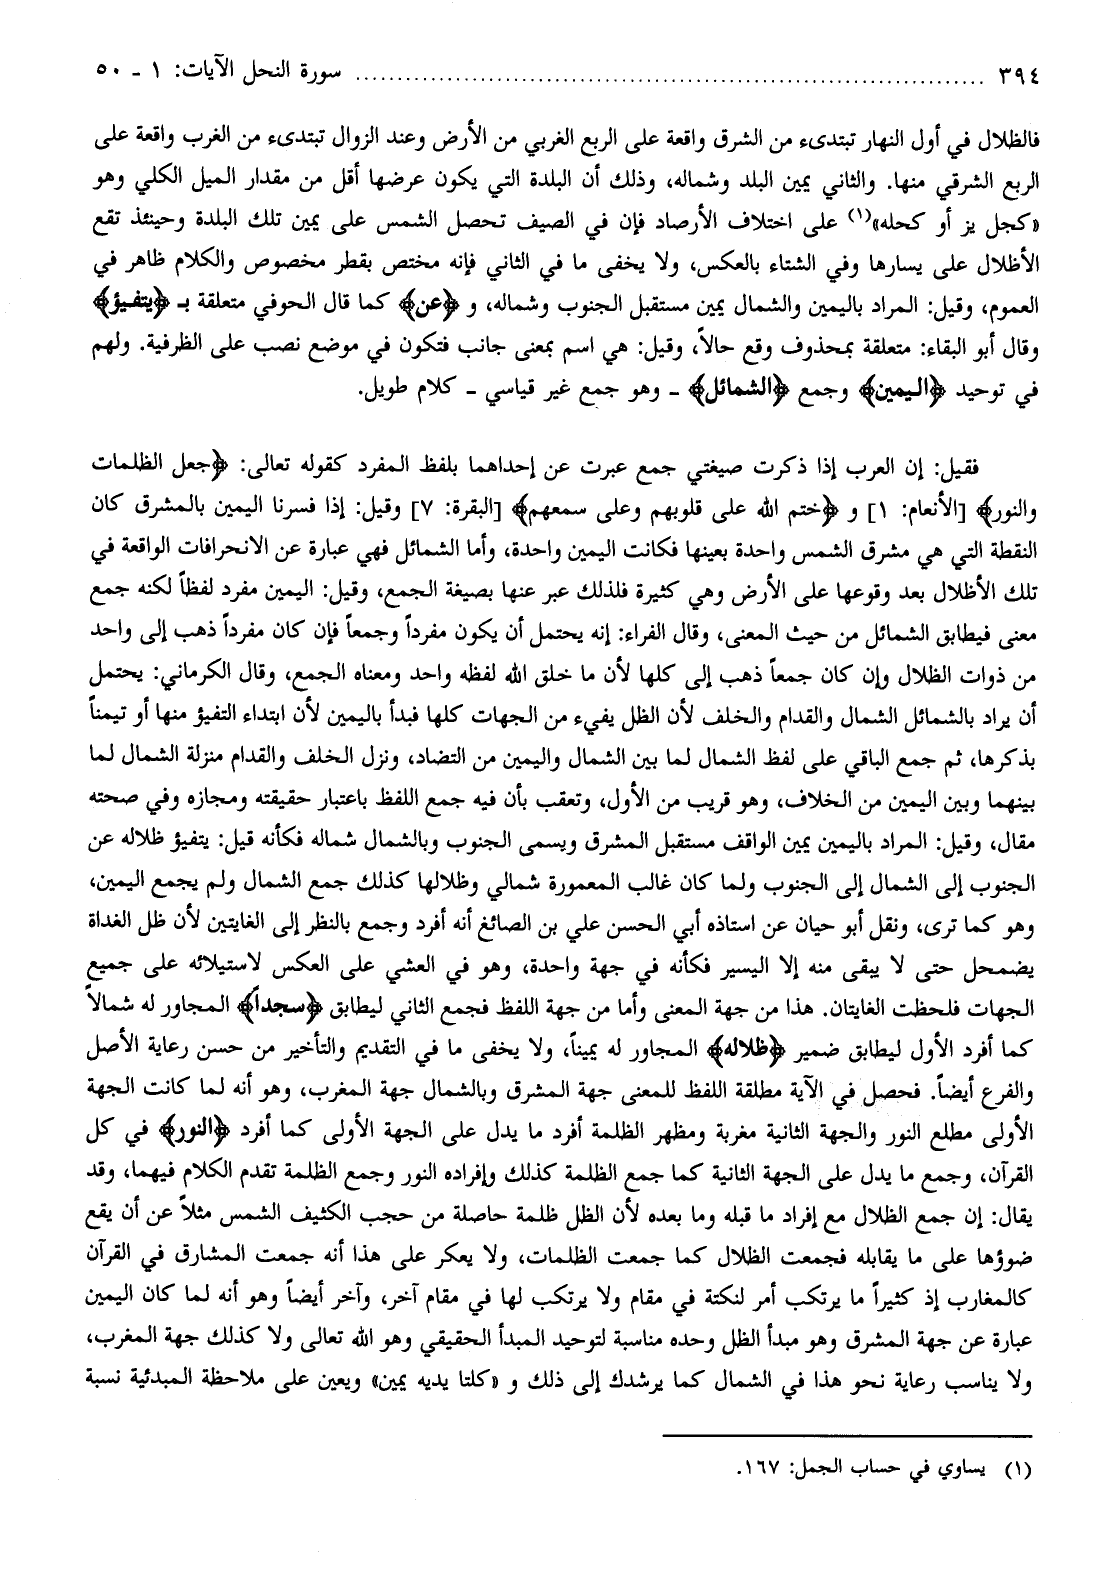 ٣٩٤ ........................................................ سورة النحل الآيات: ١ - ٥٠
فالظلال في أول النهار تبتدىء من الشرق واقعة على الربع الغربي من الأرض وعند الزوال تبتدىء من الغرب واقعة على
الربع الشرقي منها. والثاني يمين البلد وشماله، وذلك أن البلدة التي يكون عرضها أقل من مقدار الميل الكلي وهو
«كجل يز أو كحله»(١) على اختلاف الأرصاد فإن في الصيف تحصل الشمس على يمين تلك البلدة وحينئذ تقع
الأظلال على يسارها وفي الشتاء بالعكس، ولا يخفى ما في الثاني فإنه مختص بقطر مخصوص والكلام ظاهر في
العموم، وقيل: المراد باليمين والشمال يمين مستقبل الجنوب وشماله، و ﴿عن﴾ كما قال الحوفي متعلقة بـ ﴿يتفيؤ﴾
وقال أبو البقاء: متعلقة بمحذوف وقع حالاً، وقيل: هي اسم بمعنى جانب فتكون في موضع نصب على الظرفية. ولهم
في توحيد ﴿اليمين﴾ وجمع ﴿الشمائل﴾ - وهو جمع غير قياسي - كلام طويل.
فقيل: إن العرب إذا ذكرت صيغتي جمع عبرت عن إحداهما بلفظ المفرد كقوله تعالى: ﴿جعل الظلمات
والنور﴾ [الأنعام: ١] و ﴿ختم الله على قلوبهم وعلى سمعهم﴾ [البقرة: ٧] وقيل: إذا فسرنا اليمين بالمشرق كان
النقطة التي هي مشرق الشمس واحدة بعينها فكانت اليمين واحدة، وأما الشمائل فهي عبارة عن الانحرافات الواقعة في
تلك الأظلال بعد وقوعها على الأرض وهي كثيرة فلذلك عبر عنها بصيغة الجمع، وقيل: اليمين مفرد لفظاً لكنه جمع
معنى فيطابق الشمائل من حيث المعنى، وقال الفراء: إنه يحتمل أن يكون مفرداً وجمعاً فإن كان مفرداً ذهب إلى واحد
من ذوات الظلال وإن كان جمعاً ذهب إلى كلها لأن ما خلق الله لفظه واحد ومعناه الجمع، وقال الكرماني: يحتمل
أن يراد بالشمائل الشمال والقدام والخلف لأن الظل يفيء من الجهات كلها فبدأ باليمين لأن ابتداء التفيؤ منها أو تيمناً
بذكرها، ثم جمع الباقي على لفظ الشمال لما بين الشمال واليمين من التضاد، ونزل الخلف والقدام منزلة الشمال لما
بينهما وبين اليمين من الخلاف، وهو قريب من الأول، وتعقب بأن فيه جمع اللفظ باعتبار حقيقته ومجازه وفي صحته
مقال، وقيل: المراد باليمين يمين الواقف مستقبل المشرق ويسمى الجنوب وبالشمال شماله فكأنه قيل: يتفيؤ ظلاله عن
الجنوب إلى الشمال إلى الجنوب ولما كان غالب المعمورة شمالي وظلالها كذلك جمع الشمال ولم يجمع اليمين،
وهو كما ترى، ونقل أبو حيان عن استاذه أبي الحسن علي بن الصائغ أنه أفرد وجمع بالنظر إلى الغايتين لأن ظل الغداة
يضمحل حتى لا يبقى منه إلا اليسير فكأنه في جهة واحدة، وهو في العشي على العكس لاستيلائه على جميع
الجهات فلحظت الغايتان. هذا من جهة المعنى وأما من جهة اللفظ فجمع الثاني ليطابق ﴿سجداً﴾ المجاور له شمالاً
كما أفرد الأول ليطابق ضمير ﴿ظلاله﴾ المجاور له يميناً، ولا يخفى ما في التقديم والتأخير من حسن رعاية الأصل
والفرع أيضاً. فحصل في الآية مطلقة اللفظ للمعنى جهة المشرق وبالشمال جهة المغرب، وهو أنه لما كانت الجهة
الأولى مطلع النور والجهة الثانية مغربة ومظهر الظلمة أفرد ما يدل على الجهة الأولى كما أفرد ﴿النور﴾ في كل
القرآن، وجمع ما يدل على الجهة الثانية كما جمع الظلمة كذلك وإفراده النور وجمع الظلمة تقدم الكلام فيهما، وقد
يقال: إن جمع الظلال مع إفراد ما قبله وما بعده لأن الظل ظلمة حاصلة من حجب الكثيف الشمس مثلاً عن أن يقع
ضوؤها على ما يقابله فجمعت الظلال كما جمعت الظلمات، ولا يعكر على هذا أنه جمعت المشارق في القرآن
كالمغارب إذ كثيراً ما يرتكب أمر لنكتة في مقام ولا يرتكب لها في مقام آخر، وآخر أيضاً وهو أنه لما كان اليمين
عبارة عن جهة المشرق وهو مبدأ الظل وحده مناسبة لتوحيد المبدأ الحقيقي وهو الله تعالى ولا كذلك جهة المغرب،
ولا يناسب رعاية نحو هذا في الشمال كما يرشدك إلى ذلك و «كلتا يديه يمين» ويعين على ملاحظة المبدئية نسبة
(١) يساوي في حساب الجمل: ١٦٧.